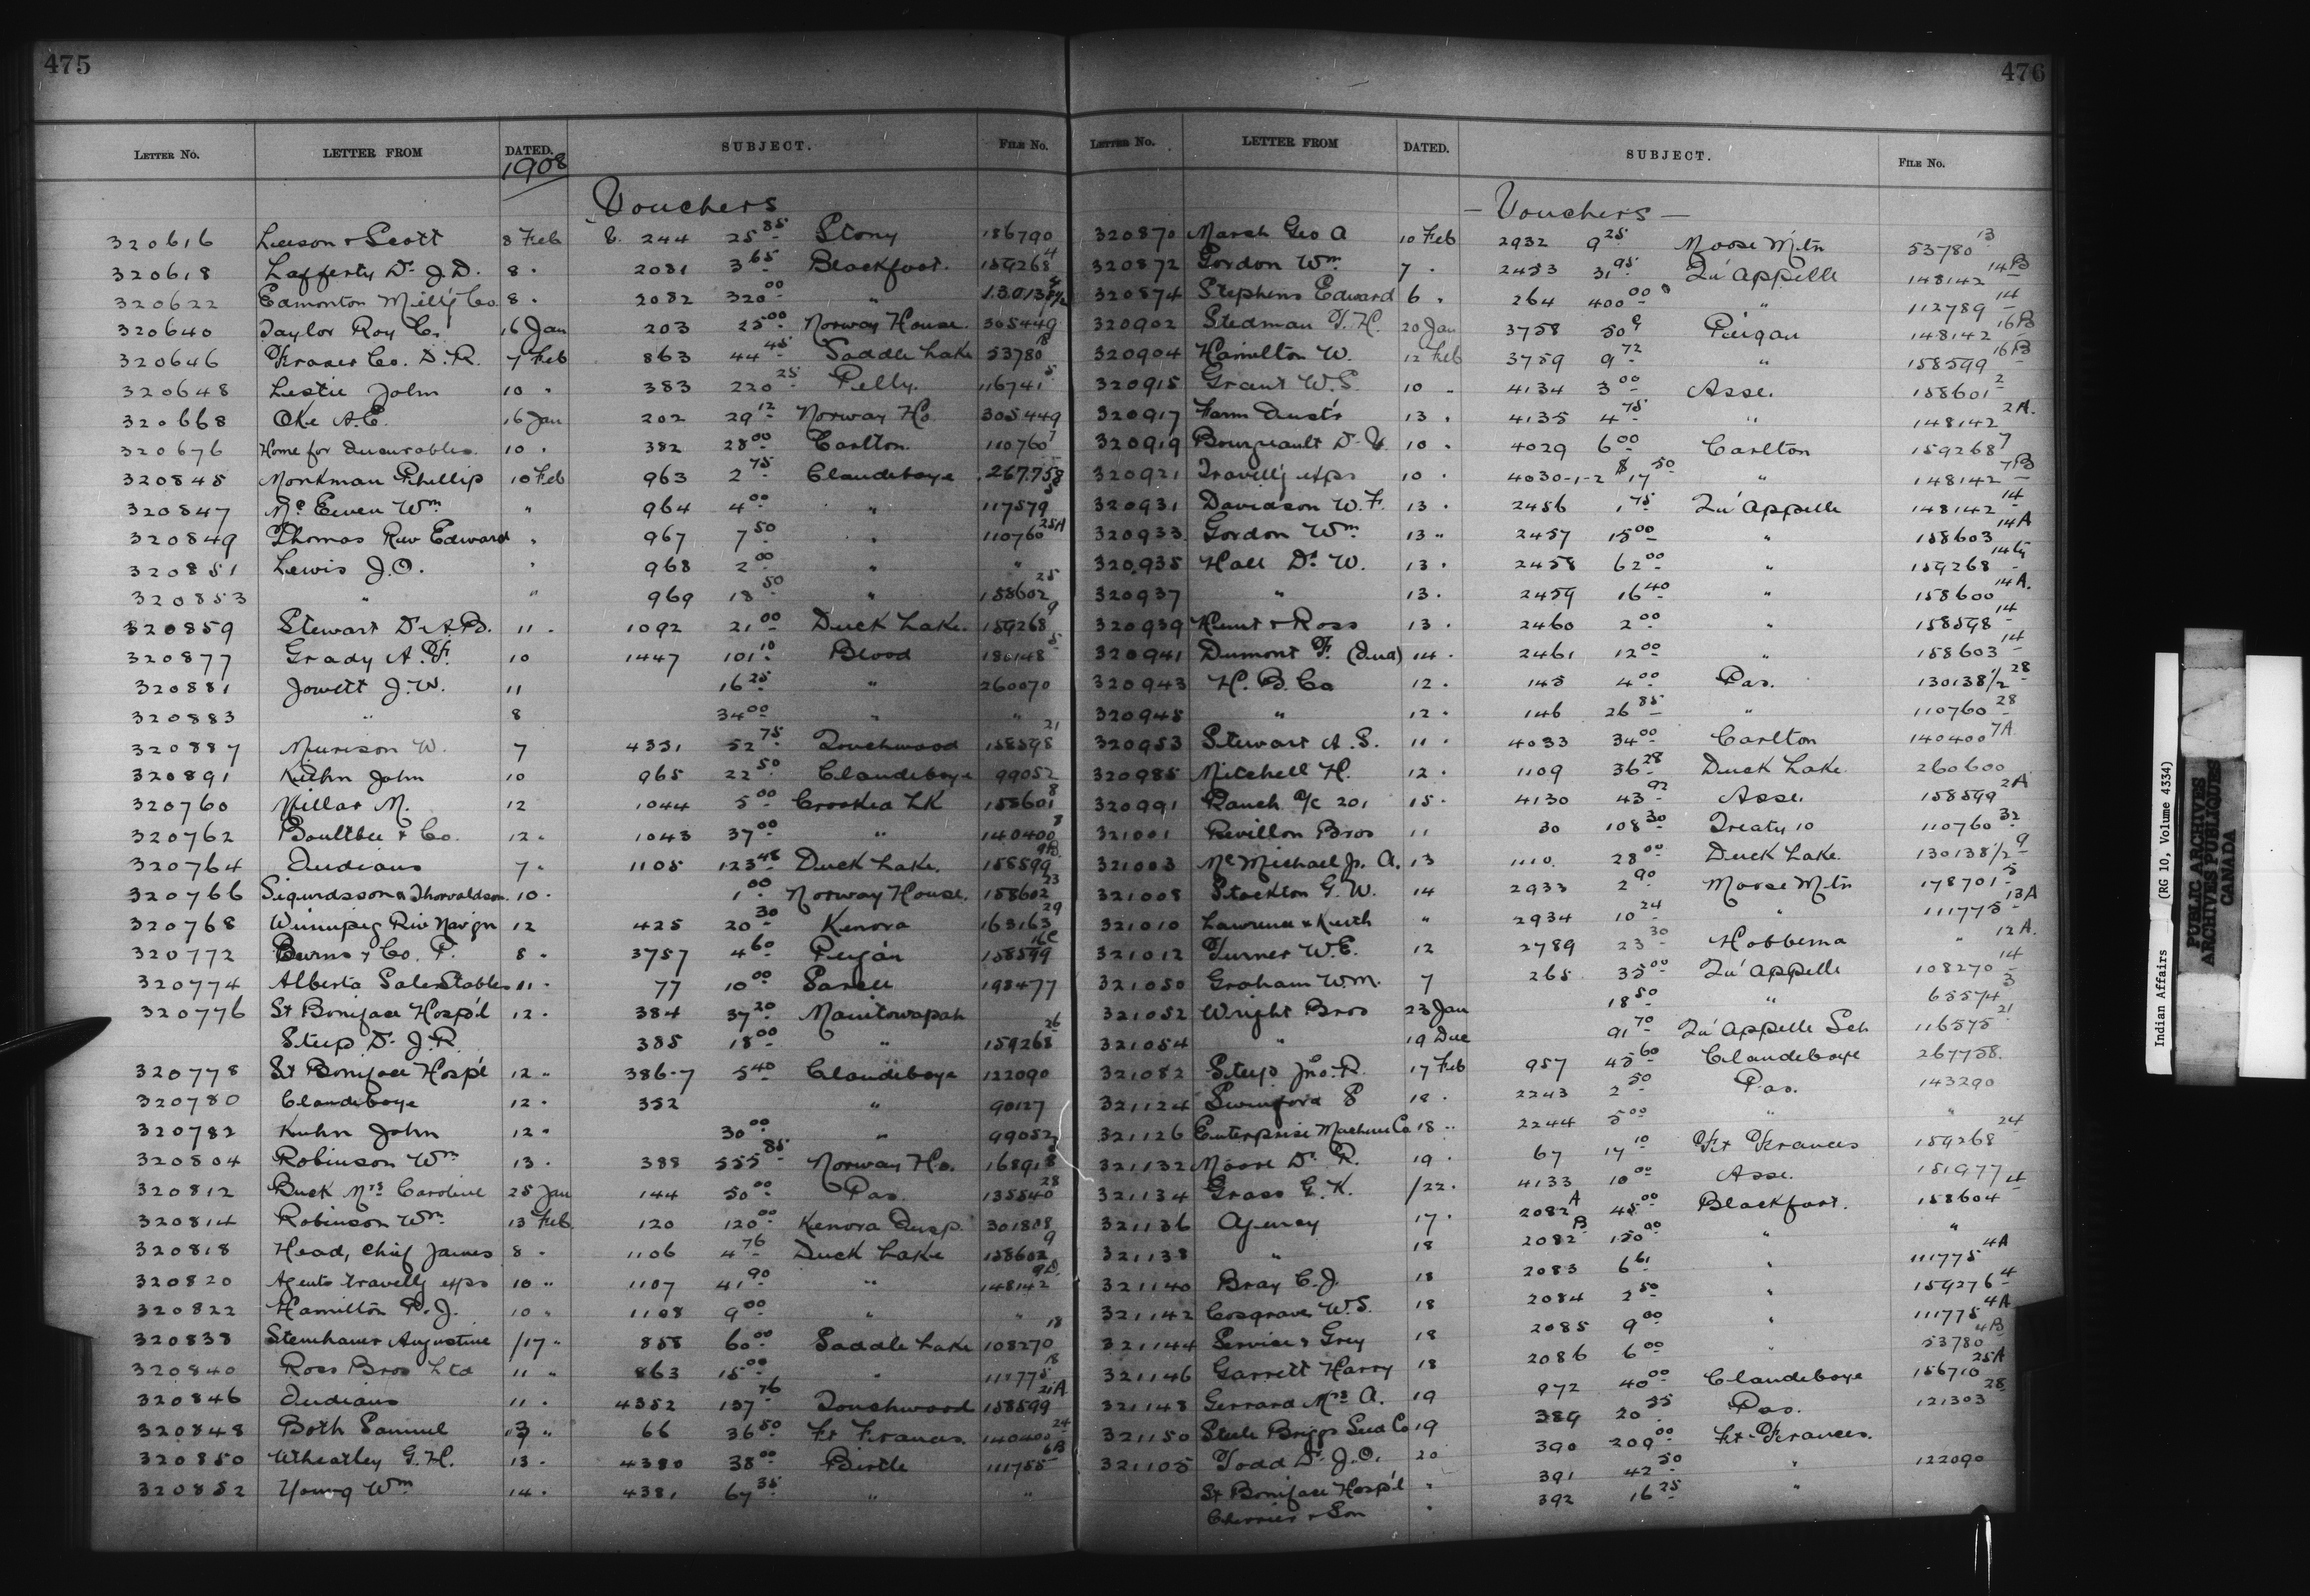 475
LETTER NO. LETTER FROM DATED. SUBJECT. FILE NO.
1908
Vouchers
320616 Leeson & Scott 8 Feb 244 25 85 Stony 186790
320618 Lafferty Dr J.D. 8 " 2081 3 65 Blackfoot. 159268 4
320622 Edmonton Mill'g Co 8 " 2082 320 00 "
320640 Taylor Roy C. 16 Jan 203 25 00 Norway House. 305449
320646 Fraser Co. D.R. 7 Feb 863 44 45 Saddle Lake 53780 18
320648 Leslie John 10 " 383 220 25 Pelly. 116741 5
320668 Oke A.E. 16 Jan 202 29 12 Norway Ho. 305449
320676 Home for Incurables 10 " 382 28 00 Carlton 110760 7
320845 Monkman Phillip 10 Feb 963 2 75 Clandeboye 267758
320847 Mc Ewen Wm " 964 4 00 " 117579
320849 Thomas Rev Edward " 967 7 50 " 110760 25A
320851 Lewis J.O. " 968 2 00 " "
320853 " " 969 18 50 " 158602 25
320859 Stewart Dr A.B. 11 " 1092 21 00 Duck Lake. 159268 9
320877 Grady A.F. 10 1447 101 10 Blood 186148 5
320881 Jowett J.W. 11 16 25 " 260070
320883 " 8 34 00 " "
320887 Murison W. 7 4331 52 75 Touchwood 158598 21
320891 Kuhn John 10 965 22 50 Clandeboye 99052
320760 Millar M. 12 1044 5 00 Crooked Lk 158601 8
320762 Boultbee & Co. 12 " 1043 37 00 " 140400 8
320764 Indians 7 " 1105 123 48 Duck Lake. 158599 9B
320766 Sigurdsson & Thorvaldson. 10 " 1 00 Norway House. 158602 23
320768 Winnipeg Riv Nav'gn 12 425 20 30 Kenora 163163 29
320772 Burns & Co. P. 8 " 3757 4 60 Peigan 158599 16C
320774 Alberta Sales Stables 11 " 77 10 00 Sarcee 198477
320776 St Boniface Hosp'l 12 " 384 37 20 Manitowapah
Steep Dr J.R. 385 18 00 " 159268 26
320778 St Boniface Hosp'l 12 " 386-7 5 40 Clandeboye 122090
320780 Clandeboye 12 " 352 " 90127
320782 Kuhn John 12 " 30 00 " 99052
320804 Robinson Wm 13 " 388 555 85 Norway Ho. 168918
320812 Buck Mrs Caroline 25 Jan 144 50 00 Pas. 135540 28
320814 Robinson Wm 13 Feb 120 120 00 Kenora Insp. 301808
320818 Head, Chief James 8 " 1106 4 76 Duck Lake 158602 9
320820 Agents travell'g exps 10 " 1107 41 90 " 148142 9D.
320822 Hamilton P.J. 10 " 1108 9 00 " "
320838 Steinhauer Augustine /17 " 858 60 00 Saddle Lake 108270 18
320840 Ross Bros Ltd 11 " 863 15 00 " 111775 18
320846 Indians 11 " 4352 137 76 Touchwood 158599 21A
320848 Both Samuel " 66 36 50 Ft Frances. 140400 24
320850 Wheatley G.H. 13 " 4380 38 00 Birtle 111755 6B
320852 Young Wm 14 " 4381 67 35 " "
476
LETTER NO. LETTER FROM DATED. SUBJECT. FILE NO.
- Vouchers -
320870 Marsh Geo A 10 Feb 2932 9 25 Moose Mtn 53780 13
320872 Gordon Wm 7 " 2453 31 95 Qu'Appelle 148142 14B
320874 Stephens Edward 6 " 264 400 00 " 112789 14
320902 Stedman T.H. 20 Jan 3758 50 c Peigan 148142 16B
320904 Hamilton W. 12 Feb 3759 9 72 " 158599 16B
320915 Grant W.S. 10 " 4134 3 00 Asse. 158601 2
320917 Farm Inst'r 13 " 4135 4 75 " 148142 2A.
320919 Bourgeault D. 10 " 4029 6 00 Carlton 159268 7
320921 Travell'g exps 10 " 4030-1-2 $17 50 " 148142 7B
320931 Davidson W.F. 13 " 2456 1 75 Qu'Appelle 148142 14
320933 Gordon Wm 13 " 2457 15 00 " 158603 14A
320935 Hall Dr W. 13 " 2458 62 00 " 159268
320937 " 13 " 2459 16 40 " 158600 14A.
320939 Hunt & Ross 13 " 2460 2 00 " 158598 14
320941 Dumont F. (Ind) 14 " 2461 12 00 " 158603 14
320943 H.B. Co 12 " 145 4 00 Pas. 130138 1/2 28
320945 " 12 " 146 26 85 " 110760 28
320953 Stewart A.S. 11 " 4033 34 00 Carlton 140400 7A
320985 Mitchell H. 12 " 1109 36 28 Duck Lake. 260600
320991 Ranch a/c 201 15 " 4130 43 92 Asse. 158599 2A
321001 Revillon Bros 11 30 108 30 Treaty 10 110760 32
321003 Mc Michael Jr. A. 13 1110 28 00 Duck Lake. 130138 1/2 9
321008 Stockton G.W. 14 2933 2 90 Moose Mtn 178701 5
321010 Lawrence & Keith " 2934 10 24 " 111775 13A
321012 Turner W.E. 12 2789 23 30 Hobbema " 12A.
321050 Graham W.M. 7 265 35 00 Qu'Appelle 108270 14
321052 Wright Bros 23 Jan 18 50 " 65574 3
321054 " 19 Dec 91 70 Qu'Appelle Sch 116575 21
321082 Steep Jno. R. 17 Feb 957 45 60 Clandeboye 267758.
321124 Swinford S 18 " 2243 2 50 Pas. 143290
321126 Enterprise Machine Co 18 " 2244 5 00 " "
321132 Moore Dr R. 19 " 67 17 10 Ft Frances 159268 24
321134 Grass G.K. /22 " 4133 10 00 Asse. 151977
321136 Agency 17 " 2082 A 45 00 Blackfoot. 158604 4
321138 " 18 2082 B 150 00 " "
321140 Bray C.J. 18 2083 6 61 " 111775 4A
321142 Cosgrave W.S. 18 2084 2 50 " 159276 4
321144 Service & Grey 18 2085 9 00 " 111775 4A
321146 Garrett Harry 18 2086 6 00 " 53780 4B
321148 Gerrard Mrs A. 19 972 40 00 Clandeboye 156710 25A
321150 Steele Briggs Seed Co 19 389 20 35 Pas. 121303 28
321105 Todd Dr J.O. 20 390 209 00 Ft Frances.
St Boniface Hosp'l " 391 42 50 " 122090
Cherrier & Son " 392 16 25 "
Indian Affairs (RG 10, Volume 4334)
PUBLIC ARCHIVES
ARCHIVES PUBLIQUES
CANADA